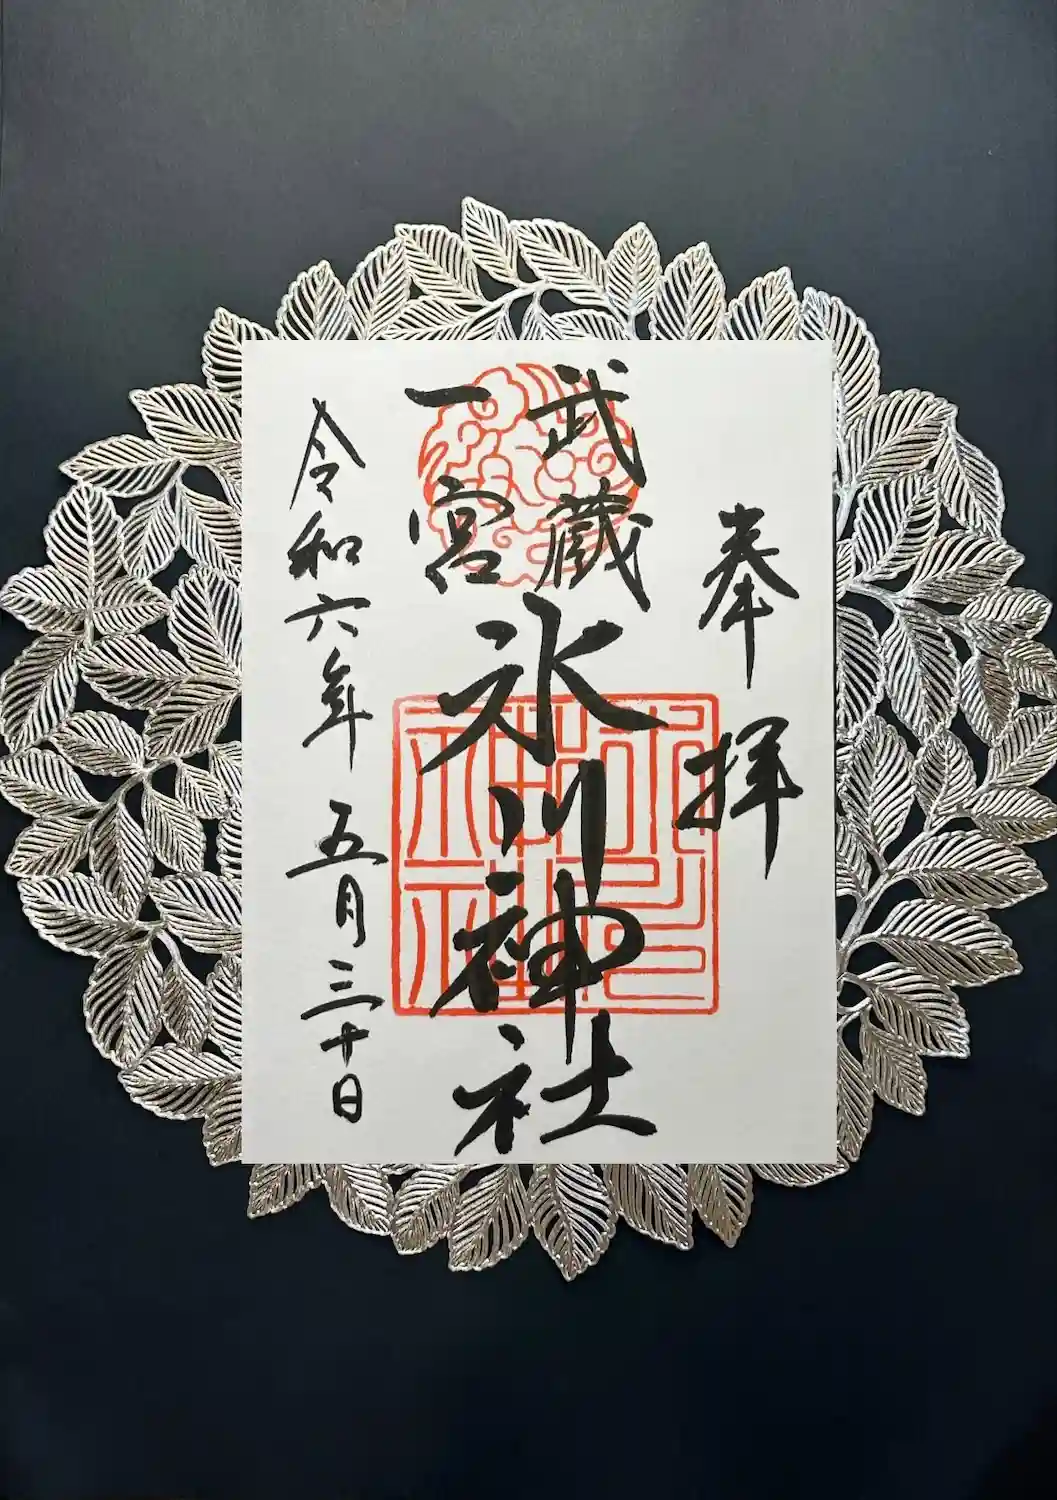 奉拝
武蔵
一宮
氷川神社
氷川神社
令和六年五月三十日